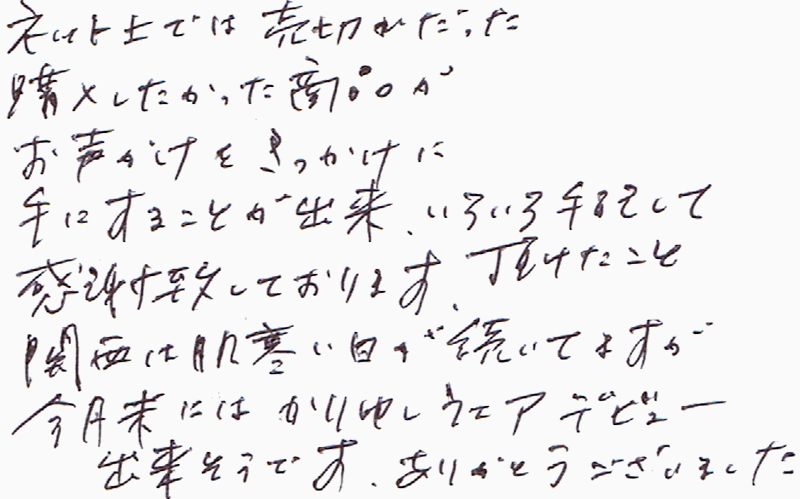 ネット上では売切れだった
購入したかった商品が
お声がけをきっかけに
手にすることが出来、いろいろ手配して
頂けたこと
感謝致しております。
関西は肌寒い日が続いてますが
今月末にはかりゆしウェアデビュー
出来そうです。ありがとうございました